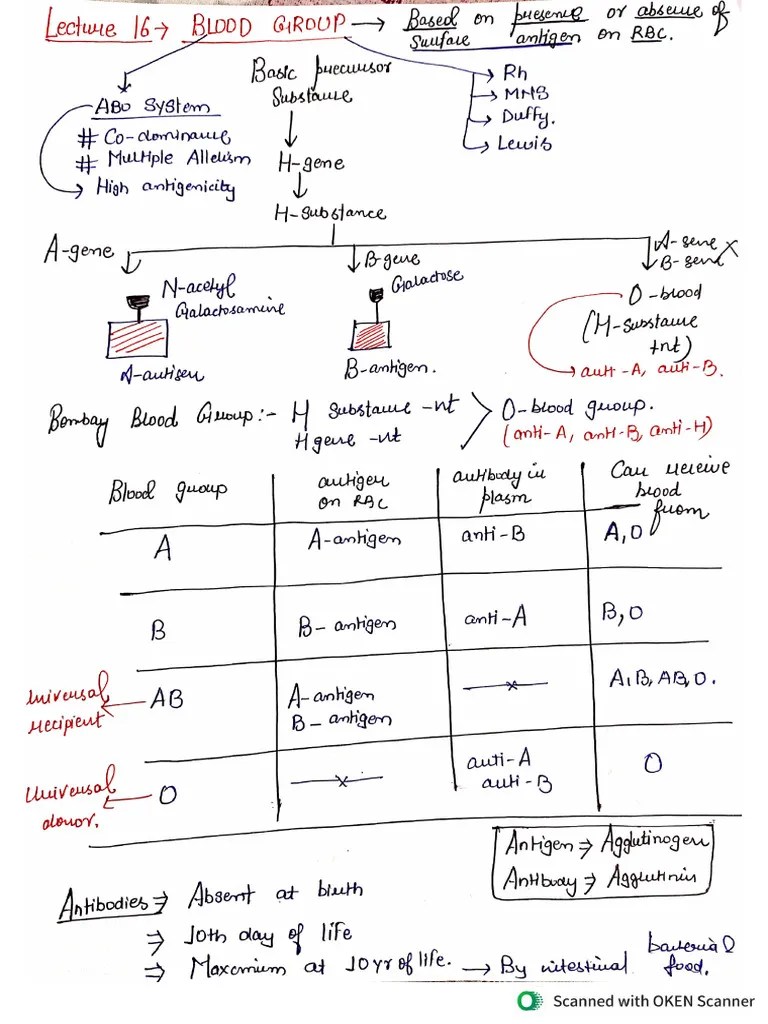 Lecture 16 → BLOOD GROUP → Based on presence or absence of
Surface antigen on RBC.
ABO System
# Co-dominance
# Multiple Allelism
High antigenicity
Basic precursor
Substance
H-gene
H-Substance
→ Rh
→ MNS
→ Duffy.
→ Lewis
A-gene
N-acetyl
Galactosamine
A-antigen
B-gene
Galactose
B-antigen.
A-gene
B-gene X
O-blood
(H-Substance
+nt)
→ anti-A, anti-B.
Bombay Blood Group:- H Substance -nt
H gene -nt
O-blood group.
(anti-A, anti-B, anti-H)
Blood group
antigen
on RBC
antibody in
plasm
Can receive
blood
from
A
A-antigen
anti-B
A, O
B
B- antigen
anti-A
B, O
Universal
recipient
AB
A-antigen
B- antigen
x
A, B, AB, O.
Universal
donor.
O
x
anti-A
anti-B
O
Antigen ⇒ Agglutinogen
Antibody ⇒ Agglutinin
Antibodies ⇒ Absent at birth
⇒ 10th day of life
⇒ Maxcmium at 10yr of life. → By intestinal bacteria &
food.
Scanned with OKEN Scanner